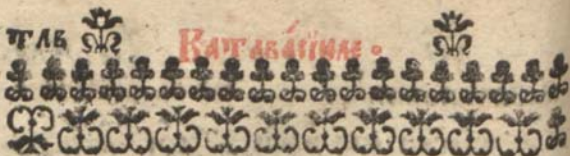 тлв Катавасїиле.